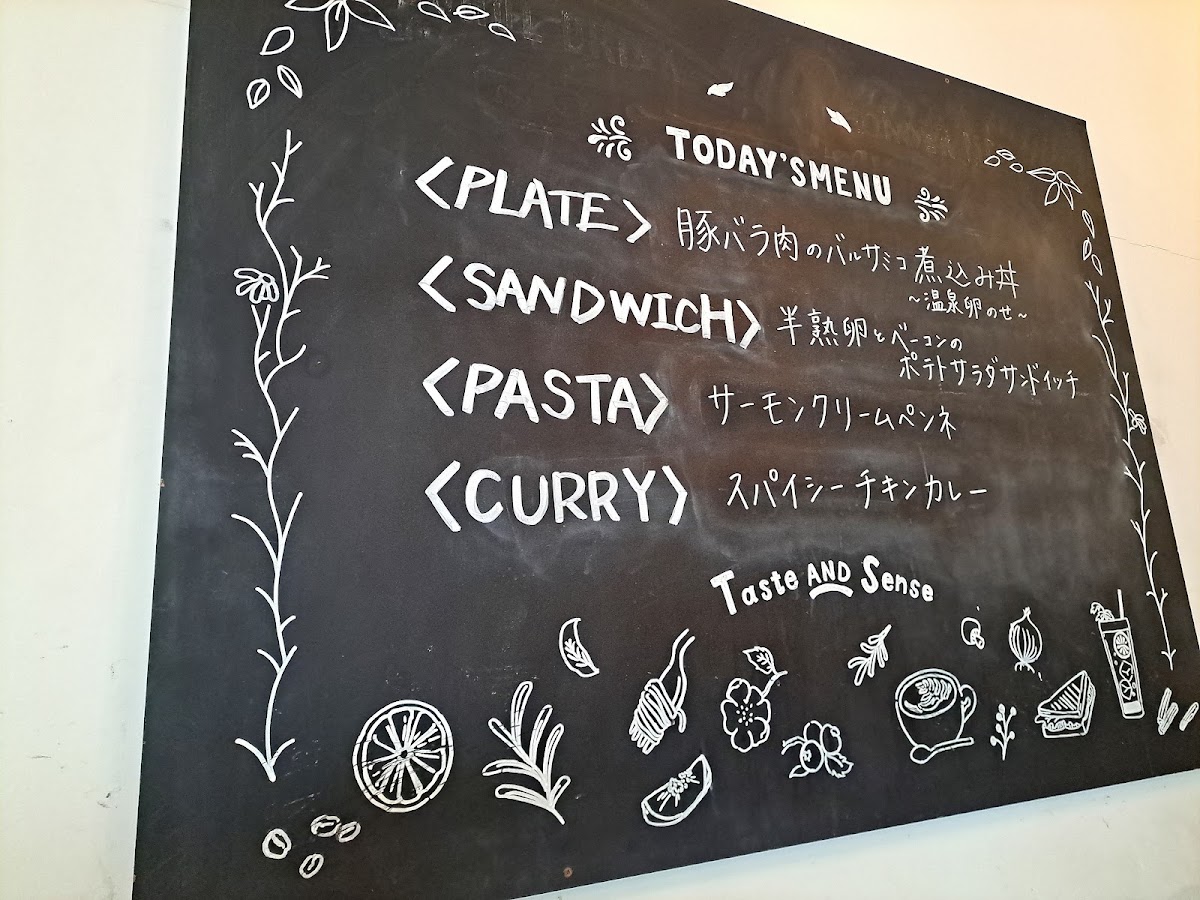 TODAY'S MENU
<PLATE> 豚バラ肉のバルサミコ煮込み丼
~温泉卵のせ~
<SANDWICH> 半熟卵とベーコンの
ポテトサラダサンドイッチ
<PASTA> サーモンクリームペンネ
<CURRY> スパイシーチキンカレー
Taste AND Sense